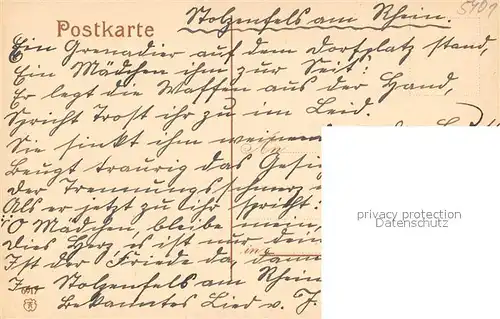 Postkarte
Stolzenfels am Rhein.
5401
Ein Grenadier auf dem Dorfplatz stand,
Ein Mädchen ihm zur Seit:
Er legt die Waffen aus der Hand,
Spricht Trost ihr zu im Leid.
Sie sinkt ihm weinend
An
Beugt traurig das Gesi
der Trennungsschmerz
Als er jetzt zu ihr spricht:
"O Mädchen, bleibe mein,
Dies Herz es ist nur dein
Ist der Friede da, dann
in
In Stolzenfels am Rhein
Bekanntes Lied v. J.
privacy protection
Datenschutz